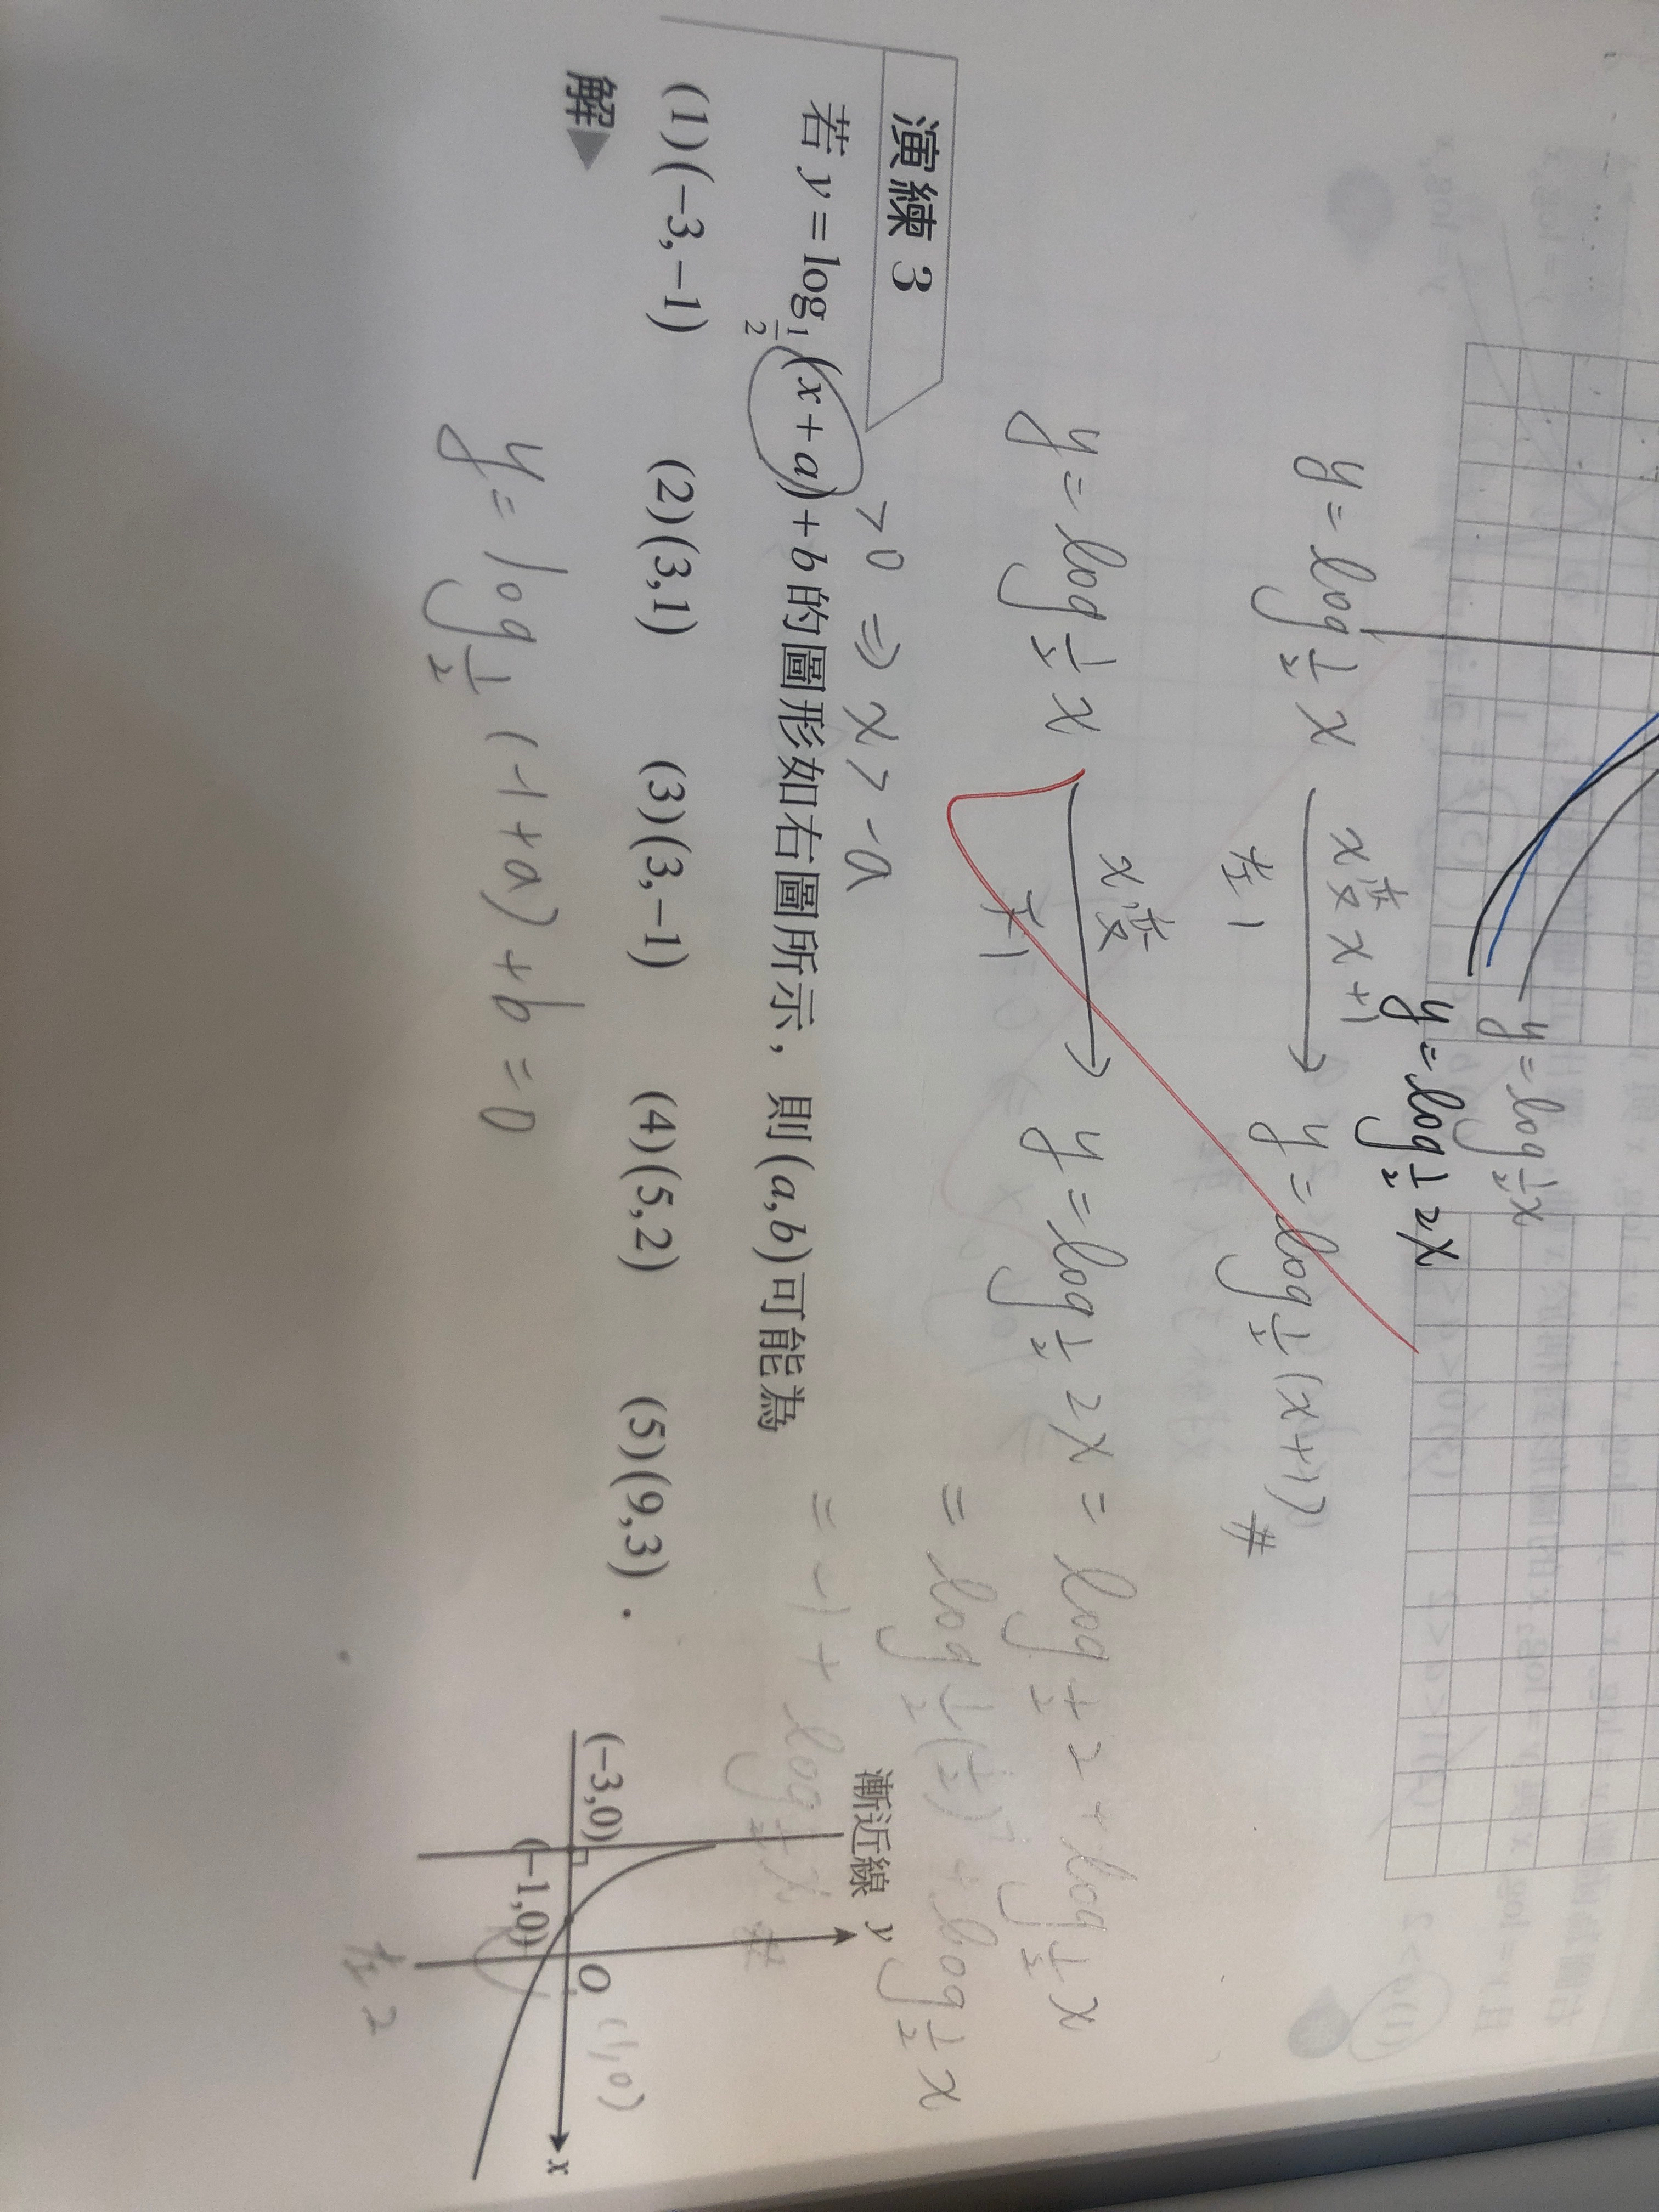 y = log 1/2 x
y = log 1/2 2x
y = log 1/2 x x變x+1 y = log 1/2 (x+1) #
左1
y = log 1/2 x x變 y = log 1/2 2x = log 1/2 2 + log 1/2 x
下1
= log 1/2 (1/2)⁻¹ + log 1/2 x
= -1 + log 1/2 x #
演練 3
>0 ⇒ x > -a
若 y = log 1/2 (x+a)+b 的圖形如右圖所示，則(a,b)可能為
(1)(−3,−1) (2)(3,1) (3)(3,−1) (4)(5,2) (5)(9,3).
解
y = log 1/2 (-1+a)+b = 0
漸近線 y
(−3,0)
(−1,0)
O
(1,0)
x
左2